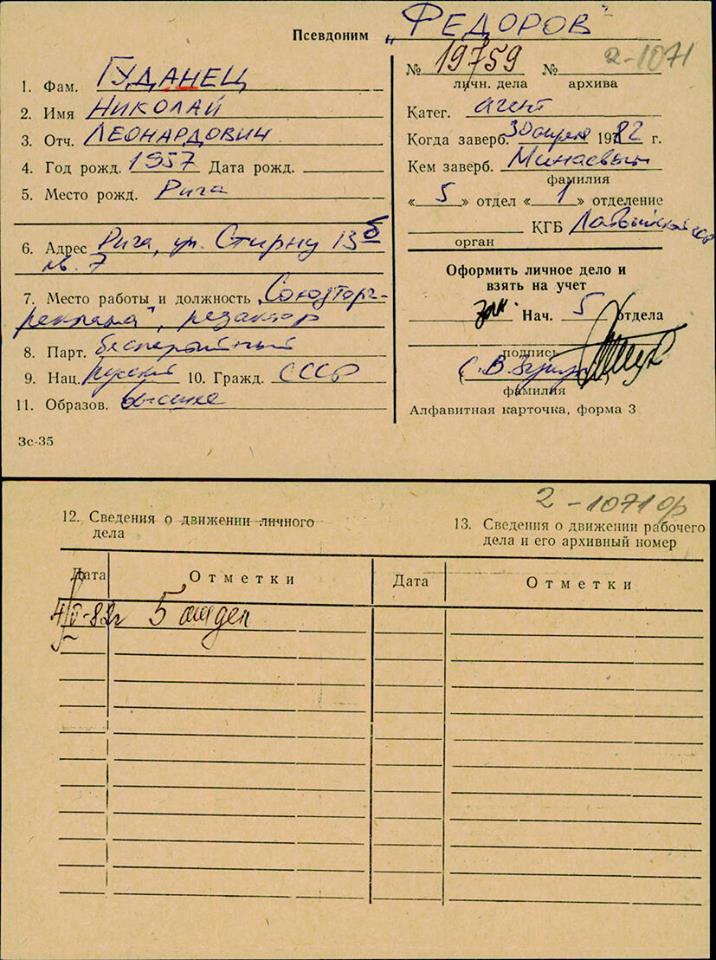 Псевдоним „ФЕДОРОВ"
№ 19759 № 2-1071
личн. дела архива
1. Фам. ГУДАНЕЦ
2. Имя НИКОЛАЙ
3. Отч. ЛЕОНАРДОВИЧ
4. Год рожд. 1957 Дата рожд.
5. Место рожд. Рига
6. Адрес Рига, ул. Стирну 13б
кв. 7
7. Место работы и должность „Союзторг-
реклама", редактор
8. Парт. беспартийный
9. Нац. русский 10. Гражд. СССР
11. Образов. высшее
Зс-35
Катег. агент
Когда заверб. 30 апреля 1982 г.
Кем заверб. Минаевым
фамилия
« 5 » отдел « 1 » отделение
КГБ Латвийской ССР
орган
Оформить личное дело и
взять на учет
зам. Нач. 5 Отдела
подпись
фамилия
Алфавитная карточка, форма 3
2-1071 ор
12. Сведения о движении личного
дела
13. Сведения о движении рабочего
дела и его архивный номер
Дата Отметки Дата Отметки
5 отдел